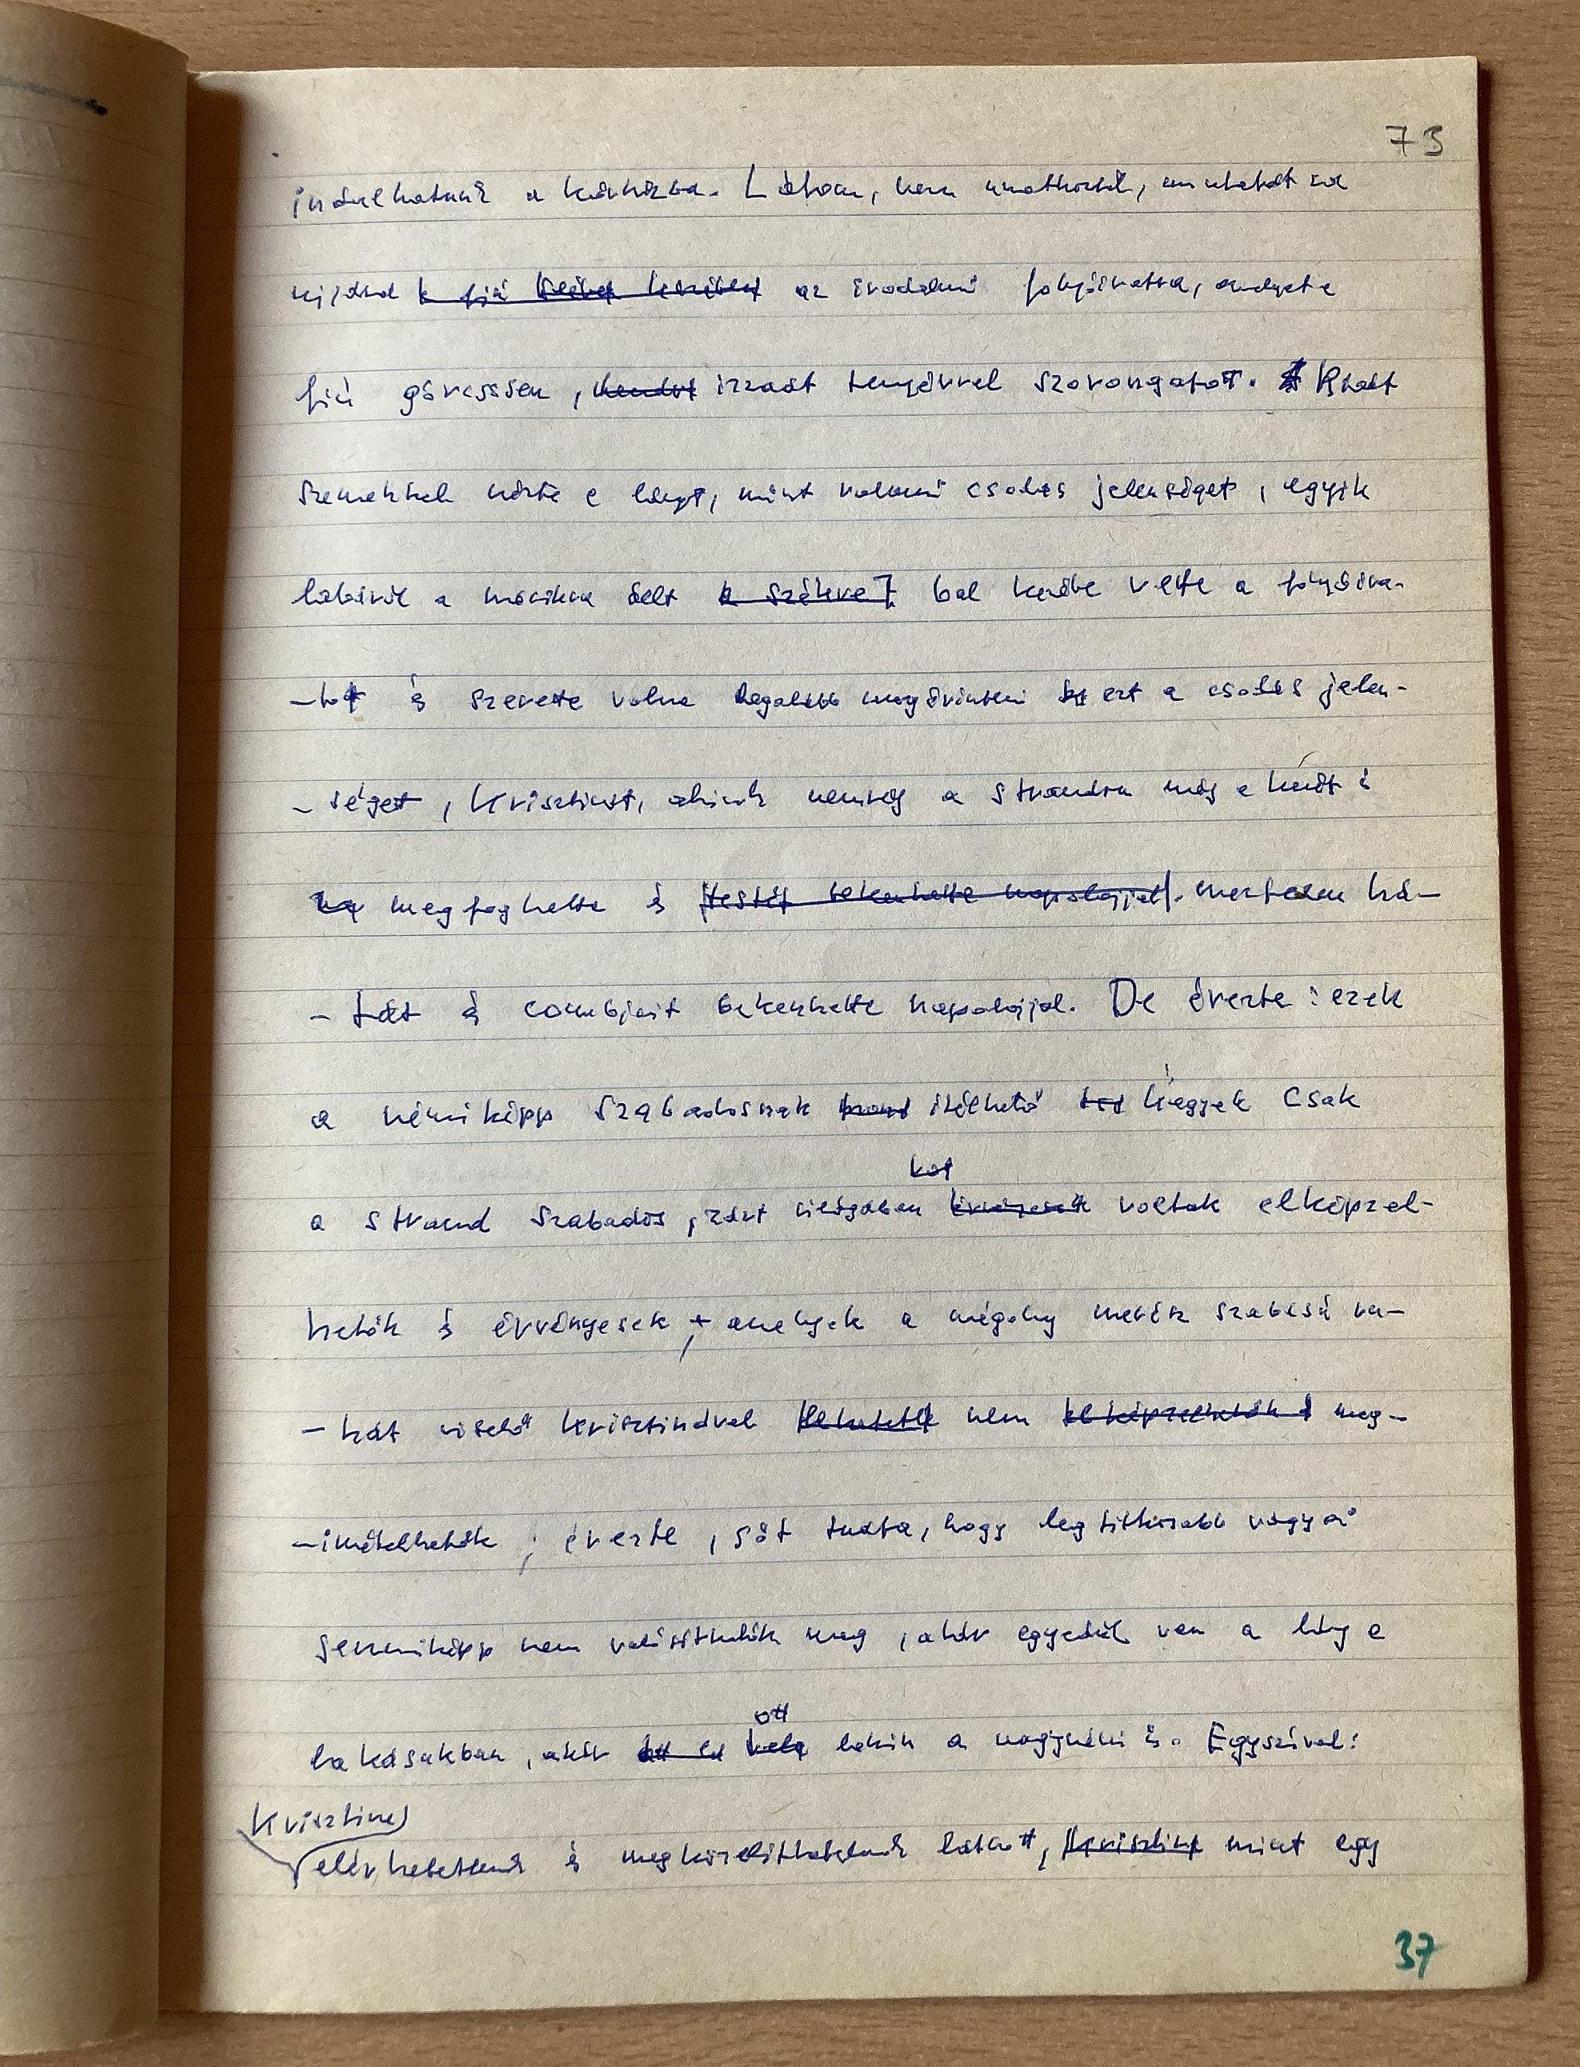 73
indulhatunk a kórházba. Látom, nem unatkoztál, mutatott rá
ujjával az irodalmi folyóiratra, amelyet a
fiú görcsösen, izzadt tenyérrel szorongatott. Riadt
szemekkel nézte a lányt, mint valami csodás jelenséget, egyik
lábáról a másikra állt bal kezébe vette a folyóira-
-tot és szerette volna legalább megérinteni ezt a csodás jelen-
-séget, Krisztinát, akinek nemrég a strandon még a kezét is
megfoghatta és meztelen há-
-tát és combjait bekenhette napolajjal. De érezte: ezek
a némiképp szabadosnak ítélhető tények csak
a strand szabados, zárt világában voltak elképzel-
hetők és érvényesek, amelyek a mégoly merész szabású ru-
-hát viselő Krisztinával nem meg-
-ismételhetők; érezte, sőt tudta, hogy legtitkosabb vágyai
semmiképp nem valósíthatók meg, akár egyedül van a lány a
ott
lakásukban, akár lakik a nagynéni is. Egyszóval:
Krisztina
elérhetetlennek és megközelíthetetlennek látszott, Krisztina mint egy
37